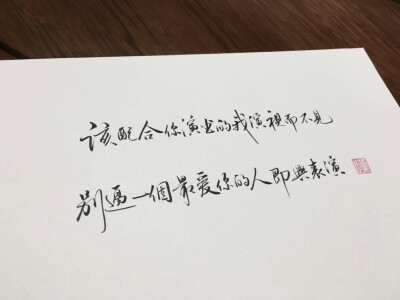 该配合你演出的我演视而不见
别逼一個最爱你的人即興表演